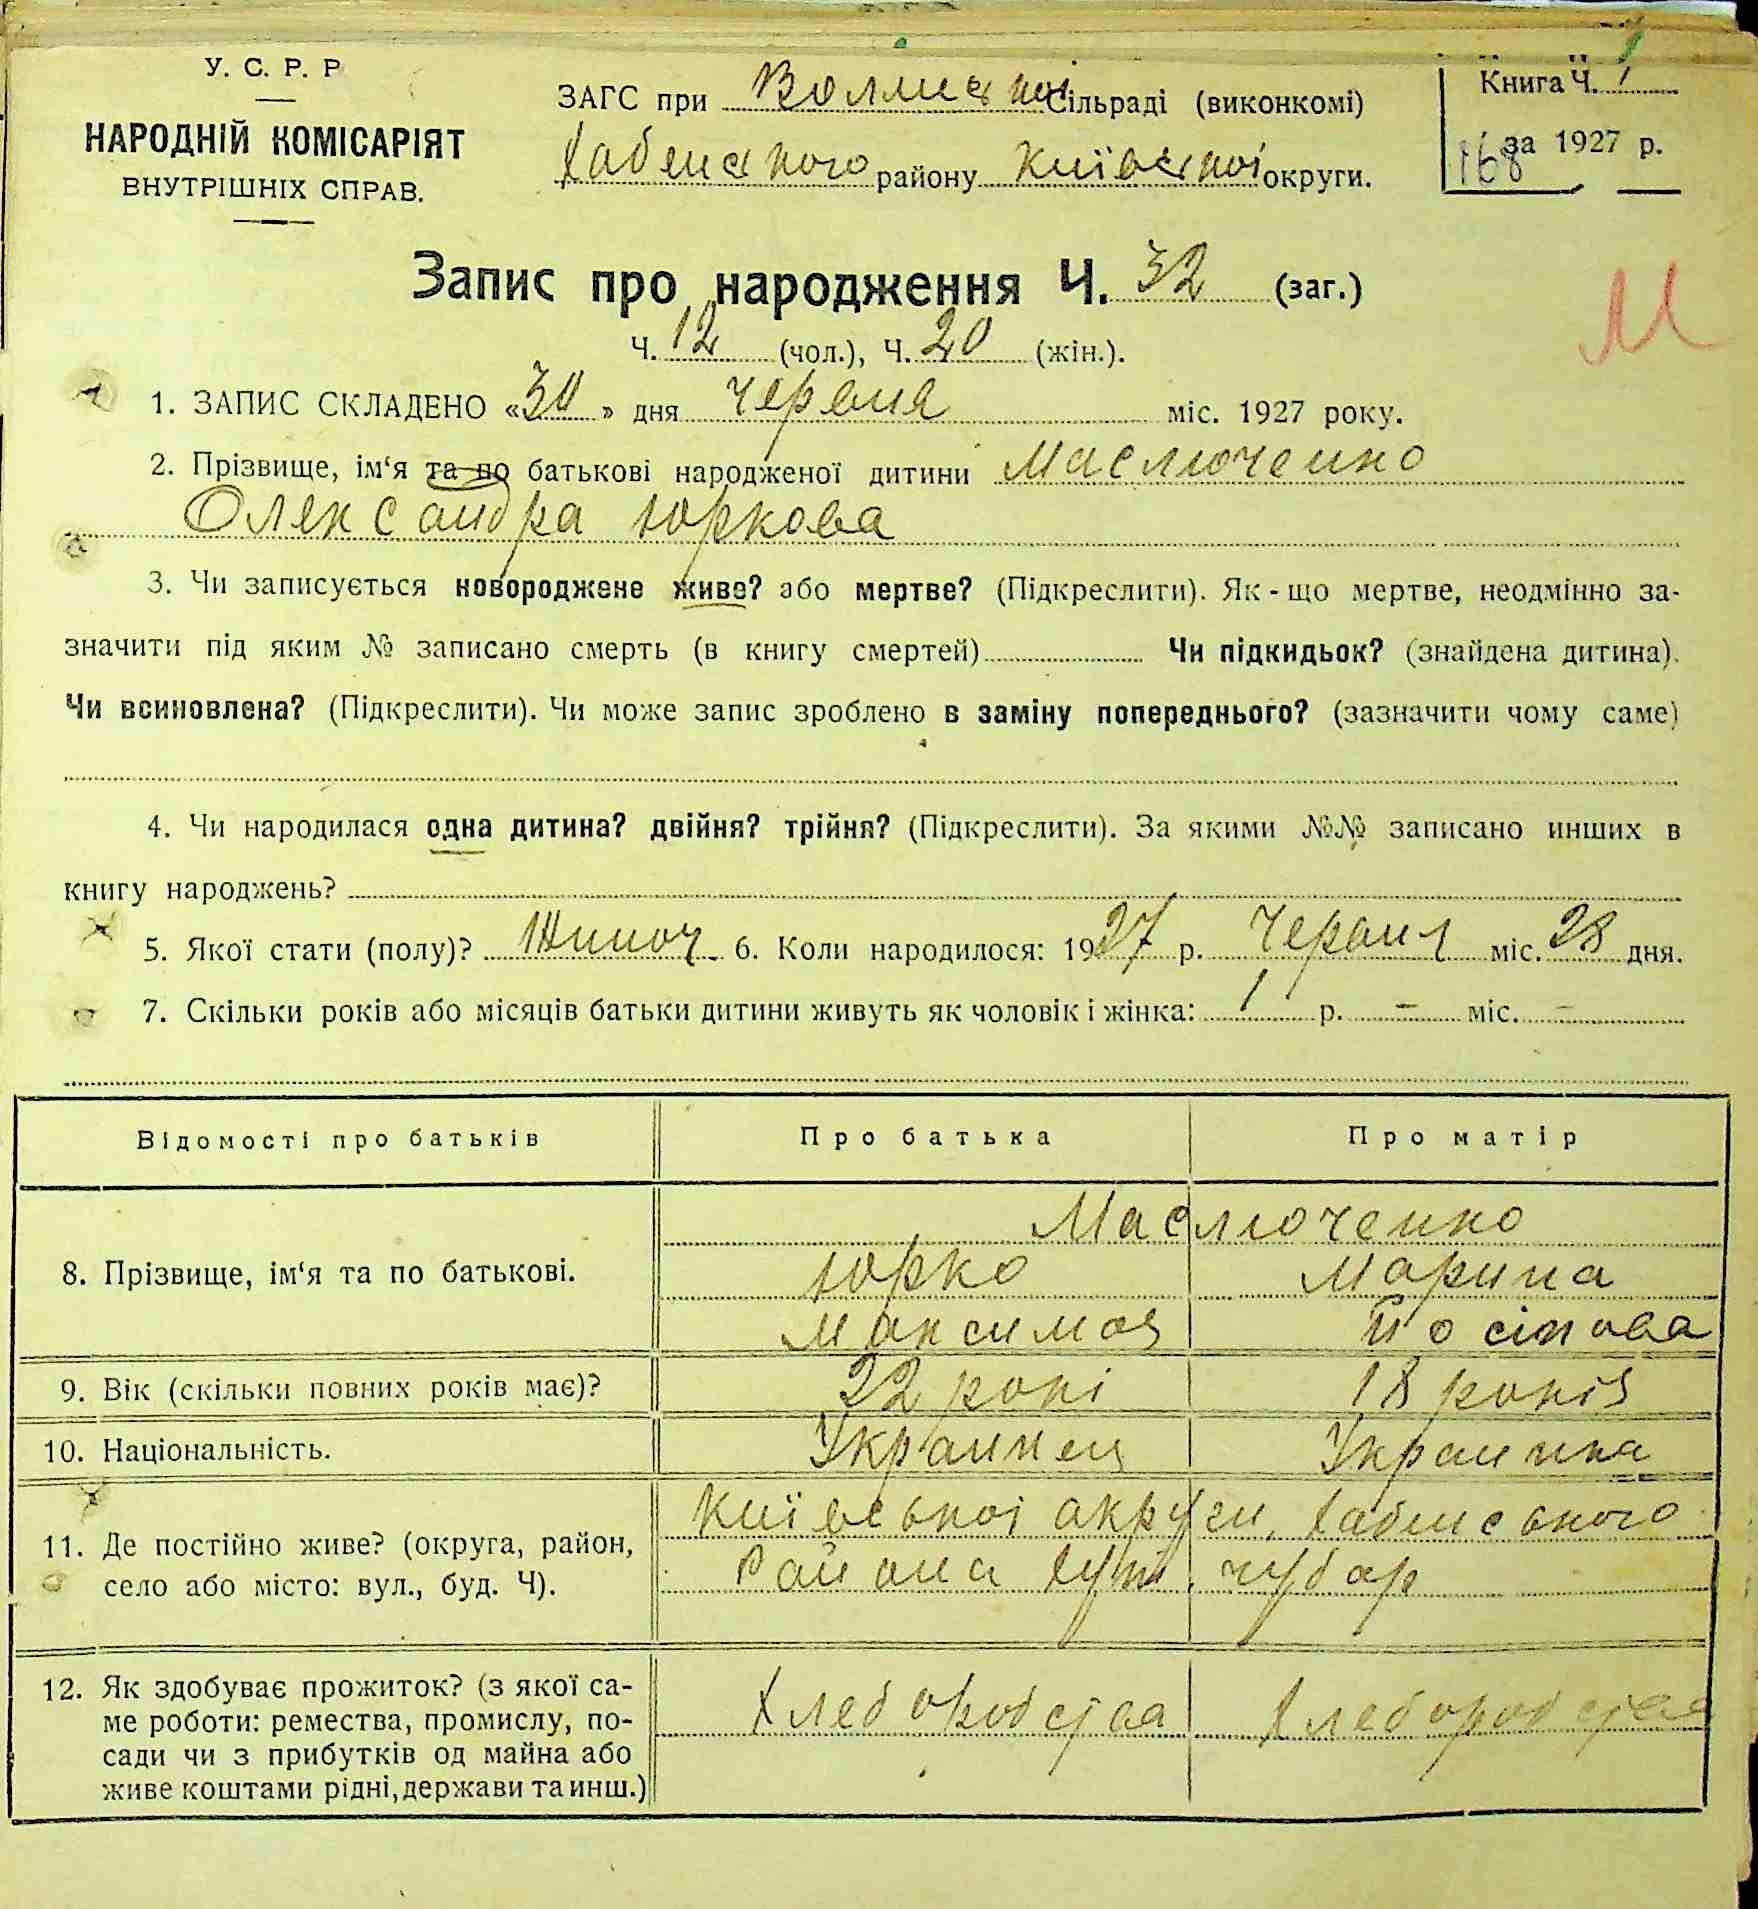 У. С. Р. Р
НАРОДНІЙ КОМІСАРІЯТ
ВНУТРІШНІХ СПРАВ.
ЗАГС при Сільраді (виконкомі)
Хабенського району Київської округи.
Книга Ч. 1
за 1927 р.
168
Запис про народження Ч. 32 (заг.)
Ч. 12 (чол.), Ч. 20 (жін.).
М
1. ЗАПИС СКЛАДЕНО «30» дня червня міс. 1927 року.
2. Прізвище, ім‘я та по батькові народженої дитини Маслюченко
Олександра Юркова
3. Чи записується новороджене живе? або мертве? (Підкреслити). Як-що мертве, неодмінно за-
значити під яким № записано смерть (в книгу смертей) Чи підкидьок? (знайдена дитина).
Чи всиновлена? (Підкреслити). Чи може запис зроблено в заміну попереднього? (зазначити чому саме)
4. Чи народилася одна дитина? двійня? трійня? (Підкреслити). За якими №№ записано инших в
книгу народжень?
5. Якої стати (полу)? Жиноч. 6. Коли народилося: 1927 р. Червня міс. 28 дня.
7. Скільки років або місяців батьки дитини живуть як чоловік і жінка: 1 р. - міс. -
Відомості про батьків Про батька Про матір
8. Прізвище, ім‘я та по батькові. Маслюченко
Юрко Марина
Максимов Йосипова
9. Вік (скільки повних років має)? 22 рокі 18 років
10. Національність. Украинец Украинка
11. Де постійно живе? (округа, район, село або місто: вул., буд. Ч). Київської округи, Хабенського
Района Хут. Чубар
12. Як здобуває прожиток? (з якої са- Хлеборобства Хлеборобства
ме роботи: ремества, промислу, по-
сади чи з прибутків од майна або
живе коштами рідні, держави та инш.)